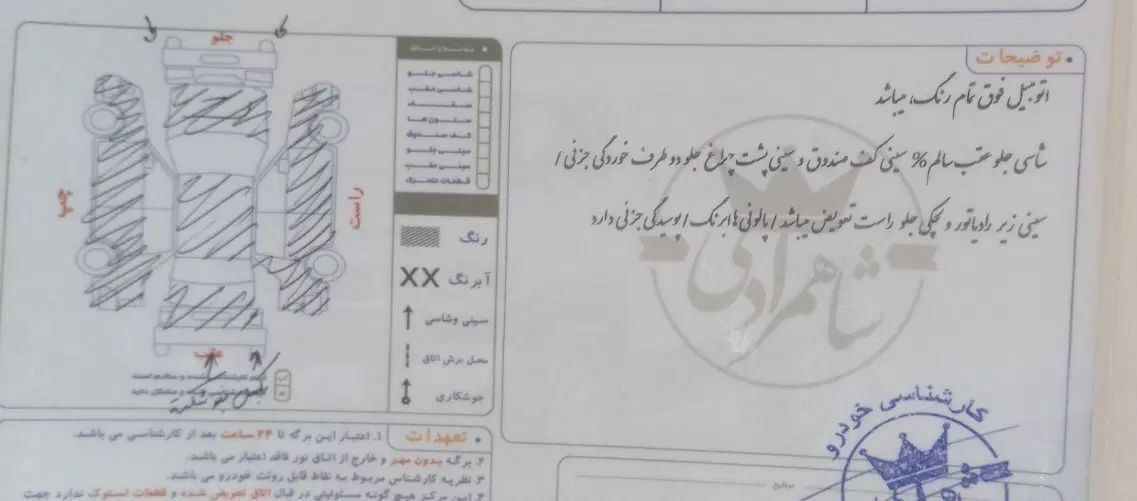 توضیحات
اتومبیل فوق تمام رنگ، میباشد
شاسی جلو عقب سالم % سینی کف صندوق و سینی پشت چراغ جلو دو طرف خوردگی جزئی /
سینی زیر رادیاتور و لچکی جلو راست تعویض میباشد / پالونی ها ابرنک / پوسیدگی جزئی دارد
شاهمرادی
کارشناسی خودرو
جلو
چپ
راست
عقب
شاسی جلو
شاسی عقب
سقف
ستون ها
کف صندوق
سینی جلو
سینی عقب
قطعات متحرک
رنگ
آبرنگ XX
سینی وشاسی
محل برش اتاق
جوشکاری
تعهدات
۱. اعتبار این برگه تا ۲۴ ساعت بعد از کارشناسی می باشد.
۲. برگه بدون مهر و خارج از اتاق نور فاقد اعتبار می باشد.
۳. نظریه کارشناس مربوط به نقاط قابل رویت خودرو می باشد.
۴. این مرکز هیچ گونه مسئولیتی در قبال اتاق تعویض شده و قطعات استوک ندارد جهت